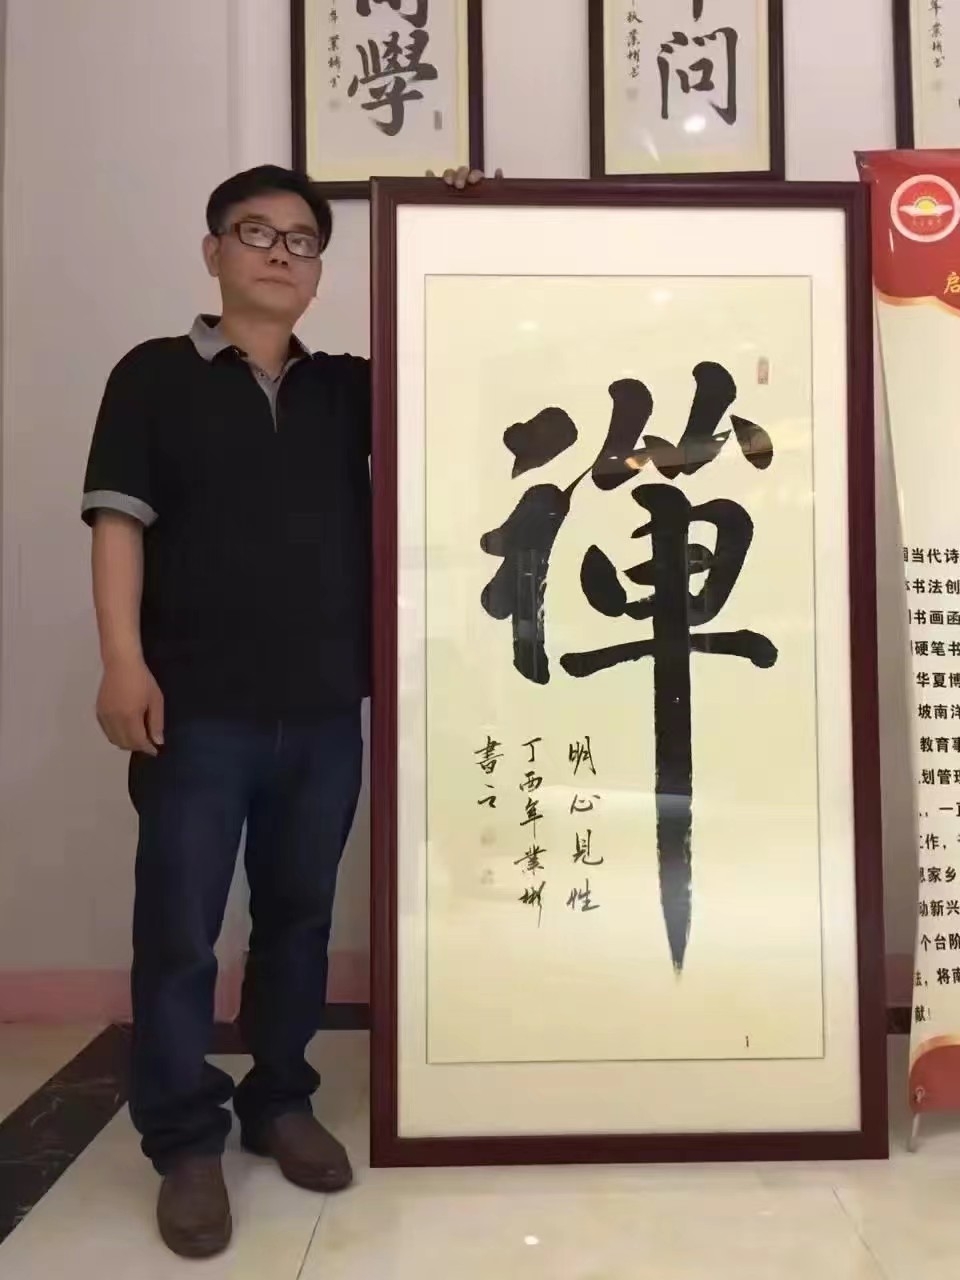 學
業彬书
問
業彬书
禪
明心見性
丁酉年業彬
書之
1
启
国当代诗
体书法创
国书画函
硬笔书
华夏博
坡南洋
教育事
划管理
一直
工作，
思家乡
动新兴
个台阶
法，将南
献！